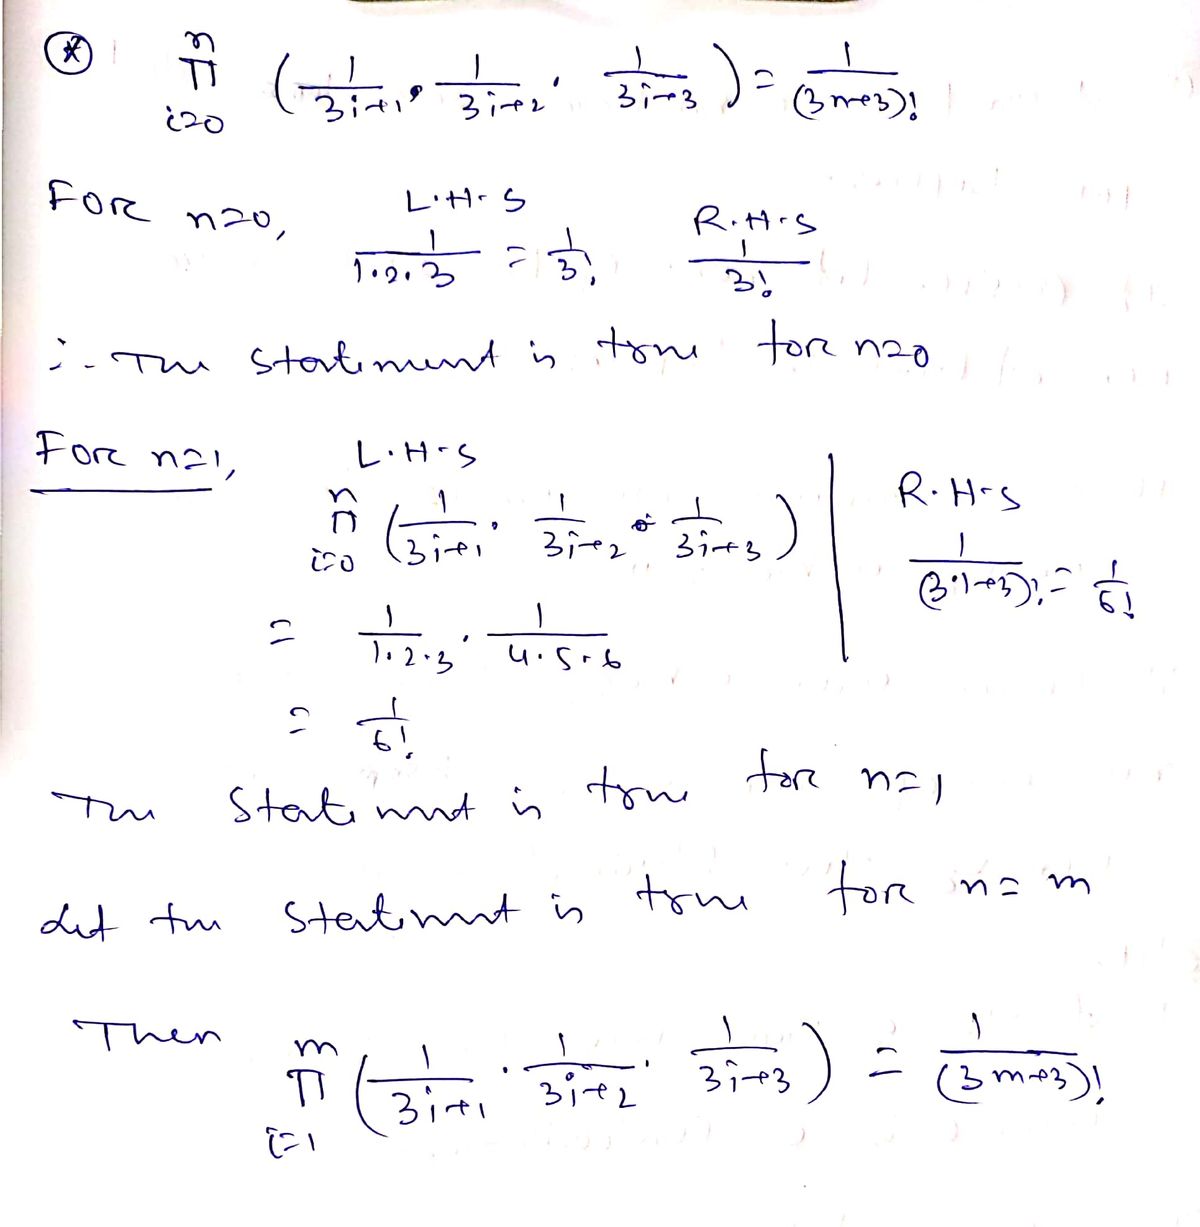 * n∏i=0 (1/3i+1 · 1/3i+2 · 1/3i+3) = 1/(3n+3)!
For n=0, L.H.S R.H.S
1/1·2·3 = 1/3! 1/3!
∴ The statement is true for n=0
For n=1, L.H.S R.H.S
n∏i=0 (1/3i+1 · 1/3i+2 · 1/3i+3) 1/(3·1+3)! = 1/6!
= 1/1·2·3 · 1/4·5·6
= 1/6!
The statement is true for n=1
Let the statement is true for n=m
Then m∏i=1 (1/3i+1 · 1/3i+2 · 1/3i+3) = 1/(3m+3)!